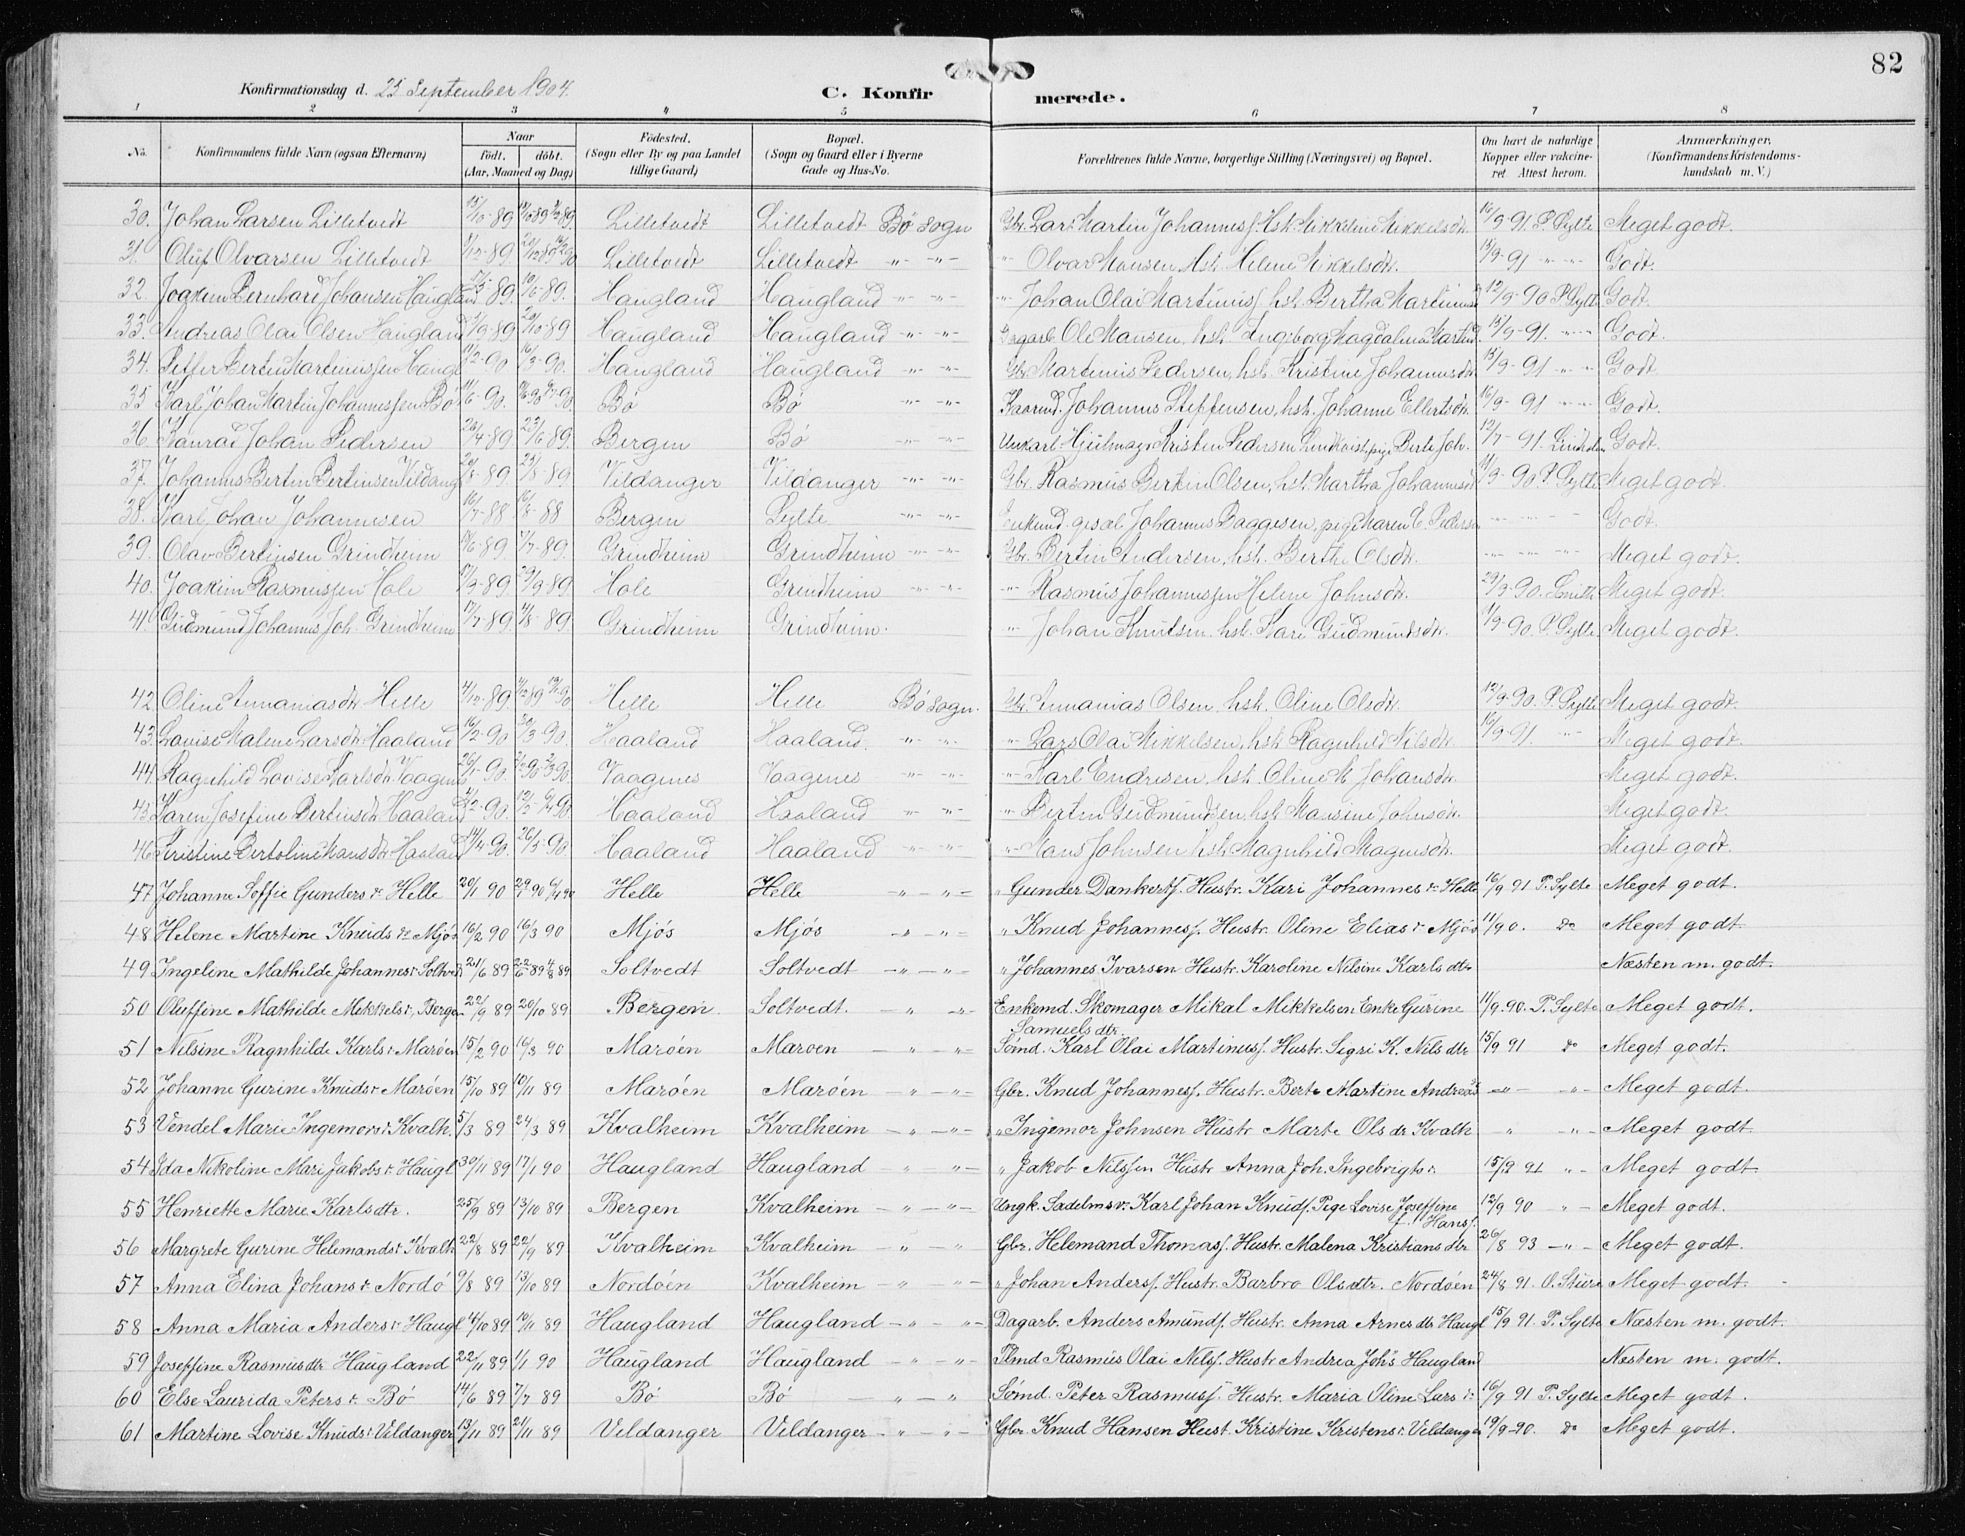 82
Konfirmationsdag d. 25 September 1904.
C. Konfirmerede.
1 2 3 4 5 6 7 8
No. Konfirmandens fulde Navn (ogsaa Efternavn) Naar født. døbt. (Aar, Maaned og Dag) Fødested. (Sogn eller By og paa Landet tillige Gaard) Bopæl. (Sogn og Gaard eller i Byerne Gade og Hus-No. Forældrenes fulde Navne, borgerlige Stilling (Næringsvei) og Bopæl. Om havt de naturlige Kopper eller vakcineret. Attest herom. Anmærkninger. (Konfirmandens Kristendomskundskab m. V.)
30. Johan Larsen Lilletvedt Lilletvedt Lilletvedt Bø sogn Gbr. Lars Martin Johanness. Hst. Mikkeline Mikkelsdtr. 16/9-91. P. Sylte Meget godt.
31. Oluf Olvarsen Lilletvedt Lilletvedt Lilletvedt -"- -"- -"- Olvar Hansen, Hst. Helene Mikkelsdtr. 15/9-91 Godt.
32. Joakim Bernhard Johansen Haugland Haugland Haugland -"- -"- -"- Johan Olai Martinuss. hst. Bertha Martinusd 12/9-90 P. Sylte Godt.
33. Andreas Olai Olsen Haugland 29/10-89 Haugland Haugland -"- -"- Dagarb. Ole Hansen, hst. Ingeborg Magdalena Martind. 15/9-91. Godt.
34. Peffer Bertin Martinussen Haugl 11/2-90 16/3-90. Haugland Haugland -"- -"- Gbr. Martinus Pedersen, hst. Kristine Johannesdtr 15/9-91 Godt.
35 Karl Johan Martin Johannessen Bø 11/6-90. Bø Bø -"- -"- Johannes Steffensen, hst. Johanne Ellertsdtr. 16/9-91 Godt.
36. Konrad Johan Pedersen 26/4-89 23/6-89. Bergen Bø -"- -"- Unkarl Hjulmager Kristen Pedersen Lindkvist, pige Berte Joh. 12/7-91. Godt.
37. Johannes Bertin Bertinsen Vildang 20/8-89. Vildanger Vildanger -"- -"- Gbr. Rasmus Bertin Olsen, hst. Martha Johannesd 11/9-90 P. Sylte Meget godt.
38. Karl Johan Johannesen 16/7-88 16/8-88 Bergen Sylte Johannes Baggesen, pige Maren E. Peders Godt.
39. Olav Bertinsen Grindheim 7/7-89. Grindheim Grindheim -"- -"- Gbr. Bertin Andersen, hst. Berthe Olsdtr. Meget godt.
40. Joakim Rasmussen Hole 29/9-89. Hole Grindheim -"- -"- -"- Rasmus Johannessen Helene Johnsdtr. 29/9-90. Smith Meget godt.
41. Gudmund Johannes Joh. Grindheim 17/7-89 4/8-89. Grindheim Grindheim. -"- Johan Knutsen, hst. Kari Gudmundsdtr. 11/9-90. P. Sylte Meget godt.
42 Oline Annaniasdtr Helle Helle Helle Bø sogn. Gbr. Annanias Olsen, hst. Oline Olsdtr. 12/9-90. P. Sylte Meget godt.
43. Lovise Malene Larsdtr. Haaland 16/2-90 30/3-90. Haaland Haaland. -"- -"- -"- Lars Olai Mikkelsen, hst. Ragnhild Nilsdtr. 16/9-91. Meget godt.
44. Ragnhild Lovise Karlsdtr. Vaagenes 26/1-90. Vaagenes Vaagenes -"- -"- -"- Karl Endresen, hst. Oline M. Johansdtr. Meget godt.
45 Karen Josefine Bertinsdtr. Haaland Haaland Haaland -"- -"- -"- Bertin Gudmundsen, hst. Hansine Johnsdtr. Meget godt.
46 Kristine Bertoline Hansdtr Haaland 14/4-90. 26/5-90. Haaland Haaland -"- -"- -"- Hans Johnsen, hst. Magnhild Magnesdtr. Meget godt.
47 Johanne Soffie Gundersdr Helle 20/1 90 Helle Helle -"- -"- " Gunder Dankerts. Hustr. Kari Johannesdr Helle 16/9 91 P. Sylte Meget godt.
48 Helene Martine Knudsdr Mjøs 16/2 90 16/3 90 Mjøs Mjøs -"- -"- " Knud Johanness. Hustr. Oline Eliasdr. Mjøs 11/9 0. Do Meget godt.
49 Ingeline Mathilde Johannesdr Soltved 21/6 89 22/6 89 4/8 89 Soltvedt Soltvedt -"- -"- " Johannes Ivarsen Hustr. Karoline Nilsine Karlsdtr. Næsten m. godt.
50 Oluffine Mathilde Mikkelsdr, Bergen 22/9 89 20/10 89 Bergen Soltvedt. -"- -"- Enkemd. Skomager Mikal Mikkelsen Enke Gurine Samuelsdtr. 11/9. 90. P. Sylte Meget godt.
51 Nilsine Ragnhilde Karlsdr Marøen 15/2 90 16/3 90 Marøen Marøen -"- -"- Sømd. Karl Olai Martinuss. Hustr. Sigri K. Nilsdtr 15/9 91 Do Meget godt.
52 Johanne Gurine Knudsdr Marøen 15/10 89 10/11 89 Marøen Marøen -"- -"- Gbr. Knud Johanness. Hustr. Berte Martine Andreasd -"- -"- Meget godt.
53 Vendel Marie Ingemorsdr Kvalh. 5/3 89 24/3 89 Kvalheim Kvalheim -"- -"- " Ingemor Johnsen Hustr Marte Olsdr Kvalh -"- -"- Meget godt
54 Ida Nikoline Mari Jakobsdr Haugl 30/11 89 17/1 90 Haugland Haugland " -"- " Jakob Nilssen Hustr Anna Joh. Ingebrigtsdr 15/9 91 -"- Meget godt
55 Henriette Marie Karlsdtr. 25/9 89 13/10 89 Bergen Kvalheim -"- -"- Ungk. Sadelmsv. Karl Johan Knuds. Pige Lovise Joseffine f. Hans. 12/9 90 -"- Meget godt.
56 Margrete Gurine Helemandsdr Kvalh 22/8 89 22/9 89 Kvalheim Kvalheim -"- " Gbr. Helemand Thomass. Hustr. Malena Kristiansdtr 26/8 93 -"- Meget godt.
57 Anna Elina Johansdr Nordø 9/8 89 13/10 89 Nordøen Kvalheim -"- -"- " Johan Anders. Hustr. Barbro Olsdtr. Nordøen 24/8 91. O. Sture Meget godt.
58 Anna Maria Andersdr Haugl 10/11 89 Haugland Haugland -"- -"- Dagarb. Anders Amunds. Hustr. Anna Arnesdtr Haugl 15/9 91. P. Sylte Næsten m. godt.
59 Joseffine Rasmusdtr Haugland 22/11 89 1/1 90 Haugland Haugland -"- -"- Rasmus Olai Nilss. Hustr Andrea Joh's Haugland Næsten m. godt.
60 Else Laurida Petersdr Bø 14/6 89 7/7 89 Bø Bø " -"- Sømd. Peter Rasmuss. Hustr. Maria Oline Larsdr 16/9 91 P. Sylte Meget godt.
61 Martine Lovise Knudsdr Vildanger 13/11 89 21/11 89 Vildanger Vildanger -"- -"- Gbr. Knud Hansen Hust. Kristine Kristensdr. Vildanger 19/9-90. Do Meget godt.